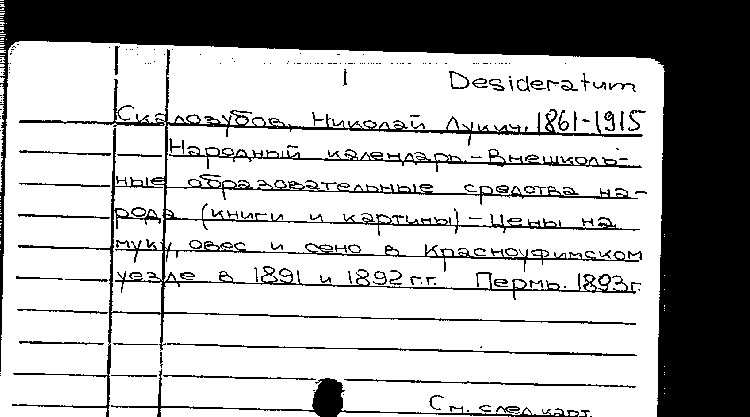 I Desideratum
Скалозубов, Николай Лукич, 1861-1915
Народный календарь.-Внешколь-
ные образовательные средства на-
рода (книги и картины)-Цены на
муку, овес и сено в Красноуфимском
уезде в 1891 и 1892 г.г. Пермь. 1893г.
См. след. карт.